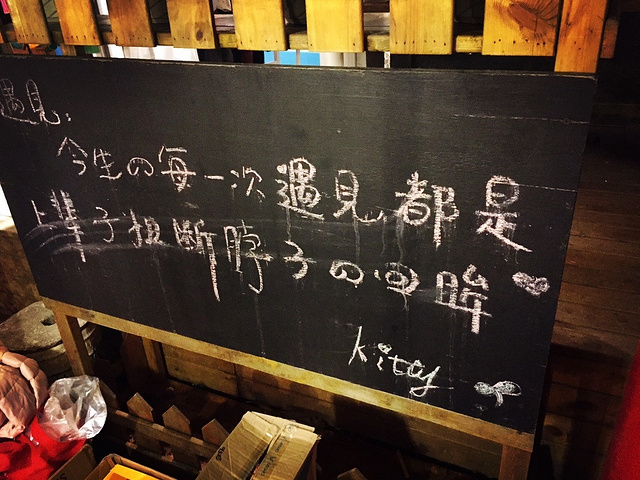 遇见:
今生の每一次遇見都是
上辈子扭断脖子の回眸
Kitty